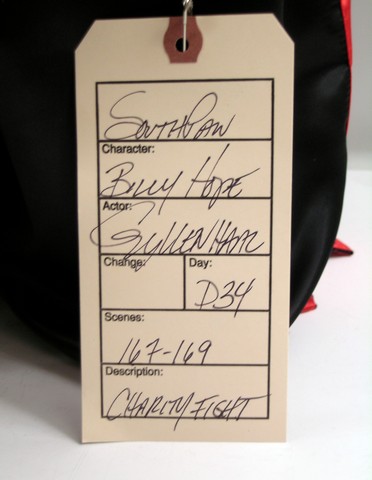 SOUTHPAW
Character:
BILLY HOPE
Actor:
GYLLENHAAL
Change:
Day:
D34
Scenes:
167-169
Description:
CHARITY FIGHT